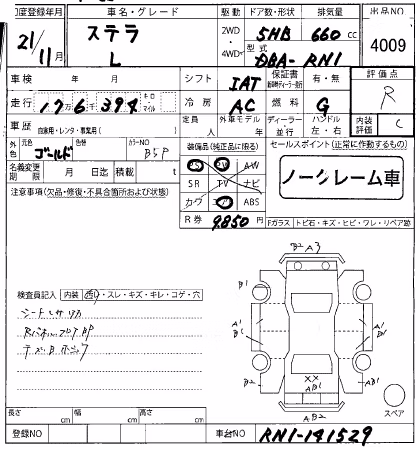 初度登録年月 車名・グレード 駆動 ドア数・形状 排気量 出品NO
21/11月 ステラ L 2WD 4WD 5HB 660 cc 4009
型式 DBA-RN1
車検 年 月 シフト IAT 保証書 有・無 評価点 R
走行 17万6千394 キロ・マイル 冷房 AC 燃料 G
車歴 自家用・レンタ・事業用( ) 定員 人 外車モデル 年 ディーラー・並行 ハンドル 左・右 内装評価 C
外色 元色 ゴールド 色替 カラーNO B5P
装備品(純正品に限る) セールスポイント(正常に作動するもの)
PS PW AW
名義変更期限 月 日迄 積載 t SR TV ナビ ノークレーム車
注意事項(欠品・修復・不具合箇所および状態) カワ エアB ABS
R券 9,850円
Fガラス トビ石・キズ・ヒビ・ワレ・リペア跡
B2 A3
B1
検査員記入 内装 ・スレ・キズ・キレ・コゲ・穴
A1 A1
B1 B1
B2 XX AB1 AB1
AB2
スペア
長さ cm 幅 cm 高さ cm
登録NO 車台NO RN1-141529